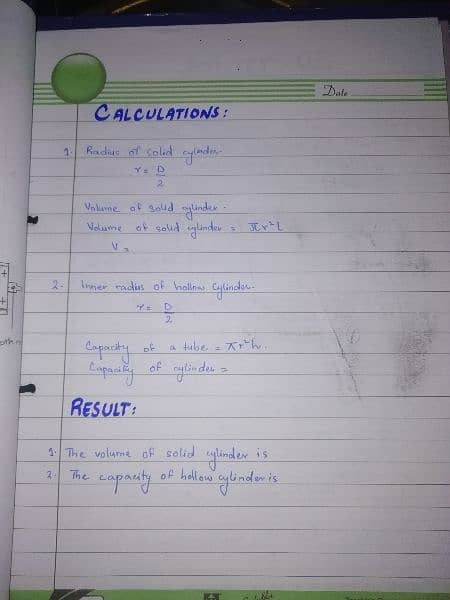 Date
CALCULATIONS:
1. Radius of solid cylinder.
r = D
2
Volume of solid cylinder.
Volume of solid cylinder = πr²L
V =
2. Inner radius of hollow Cylinder.
r = D
2
Capacity of a tube = πr²h.
Capacity of cylinder =
RESULT:
1. The volume of solid cylinder is
2. The capacity of hollow cylinder is